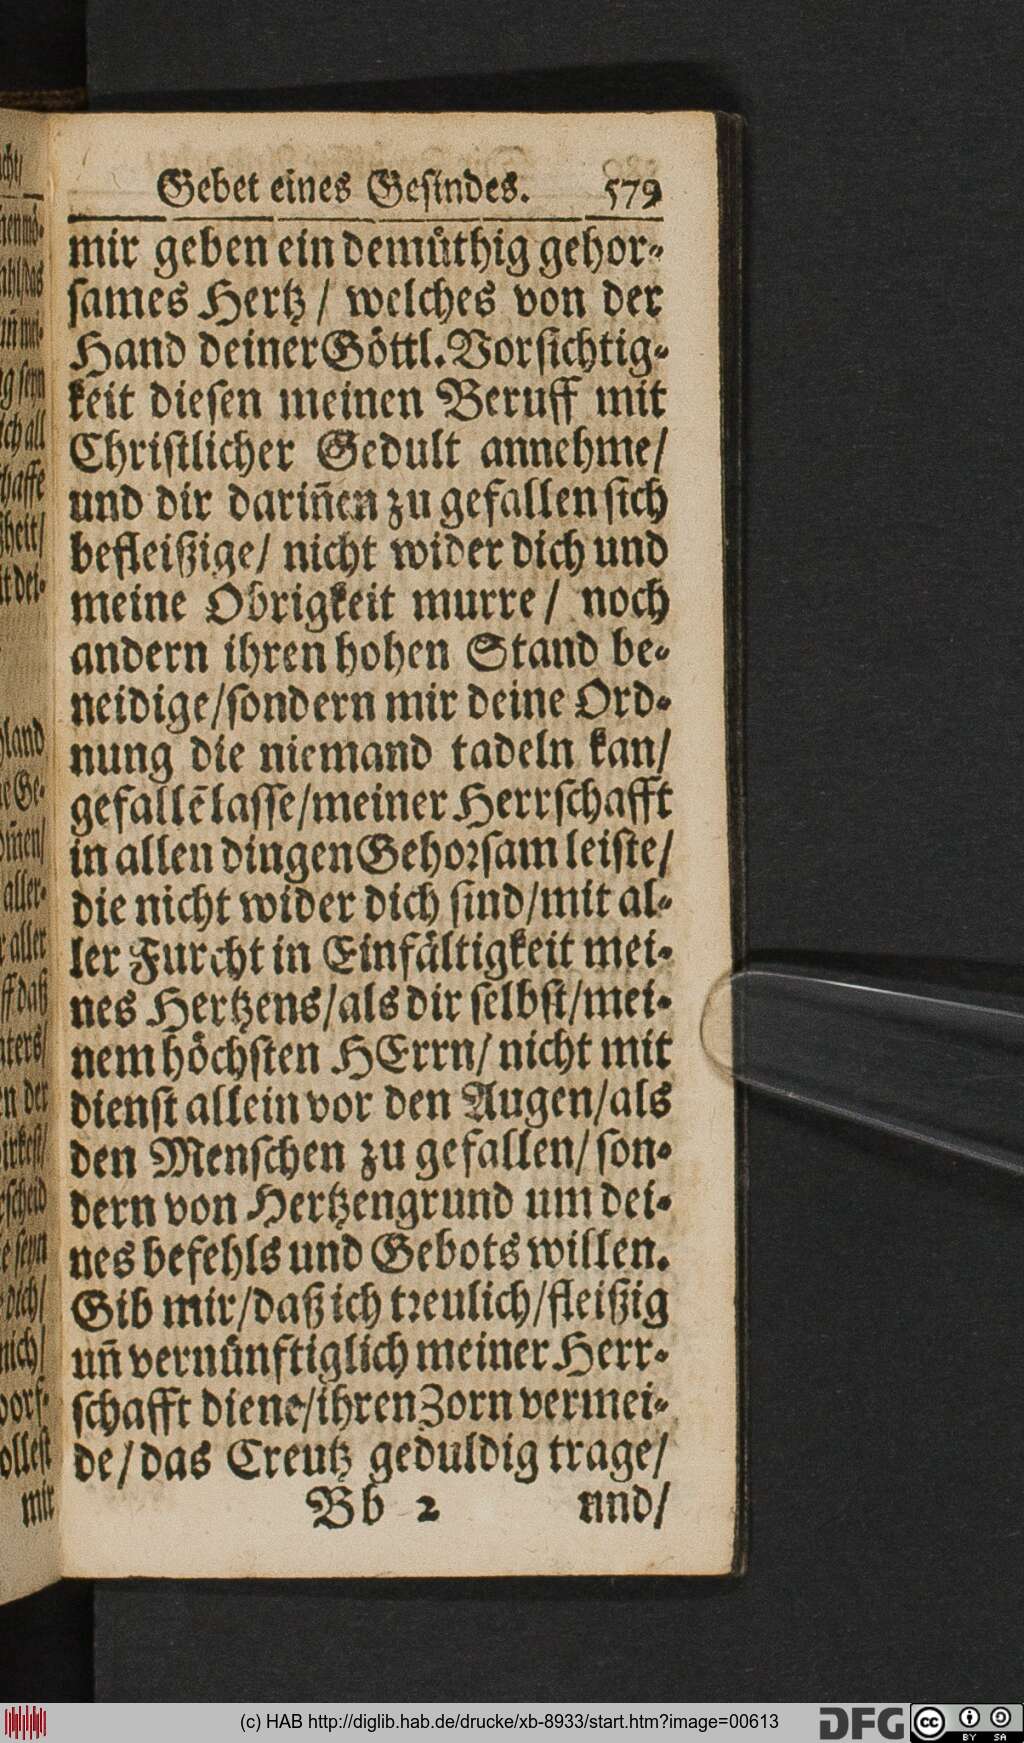 Gebet eines Gesindes. 579
mir geben ein demüthig gehor-
sames Hertz / welches von der
Hand deiner Göttl. Vorsichtig-
keit diesen meinen Beruff mit
Christlicher Gedult annehme/
und dir dariñen zu gefallen sich
befleißige/ nicht wider dich und
meine Obrigkeit murre / noch
andern ihren hohen Stand be-
neidige/sondern mir deine Ord-
nung die niemand tadeln kan/
gefallẽ lasse/meiner Herrschafft
in allen dingen Gehorsam leiste/
die nicht wider dich sind/mit al-
ler Furcht in Einfältigkeit mei-
nes Hertzens/als dir selbst/mei-
nem höchsten HErrn/ nicht mit
dienst allein vor den Augen/als
den Menschen zu gefallen/ son-
dern von Hertzengrund um dei-
nes befehls und Gebots willen.
Gib mir/daß ich treulich/fleißig
uñ vernünftiglich meiner Herr-
schafft diene/ihren Zorn vermei-
de/das Creutz geduldig trage/
Bb 2 nnd/
mir
(c) HAB http://diglib.hab.de/drucke/xb-8933/start.htm?image=00613
DFG
cc BY SA